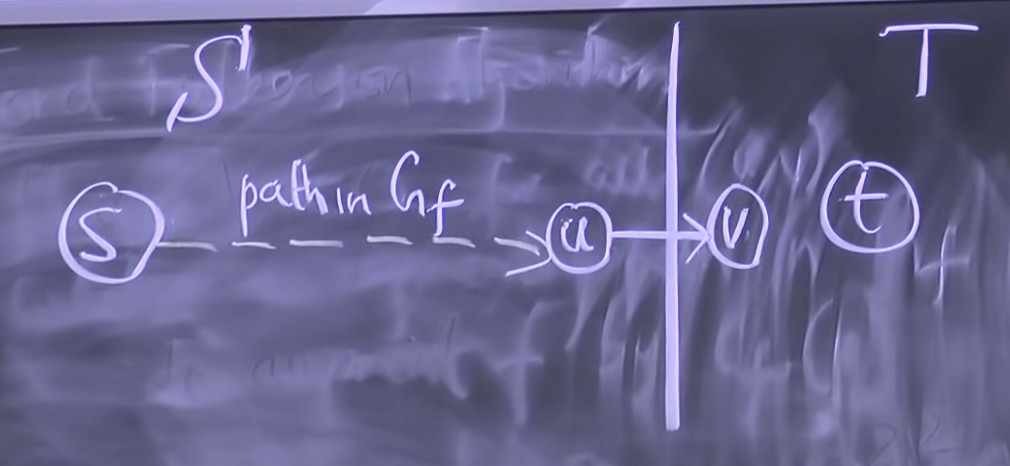 S T
path in Gf
s u v t